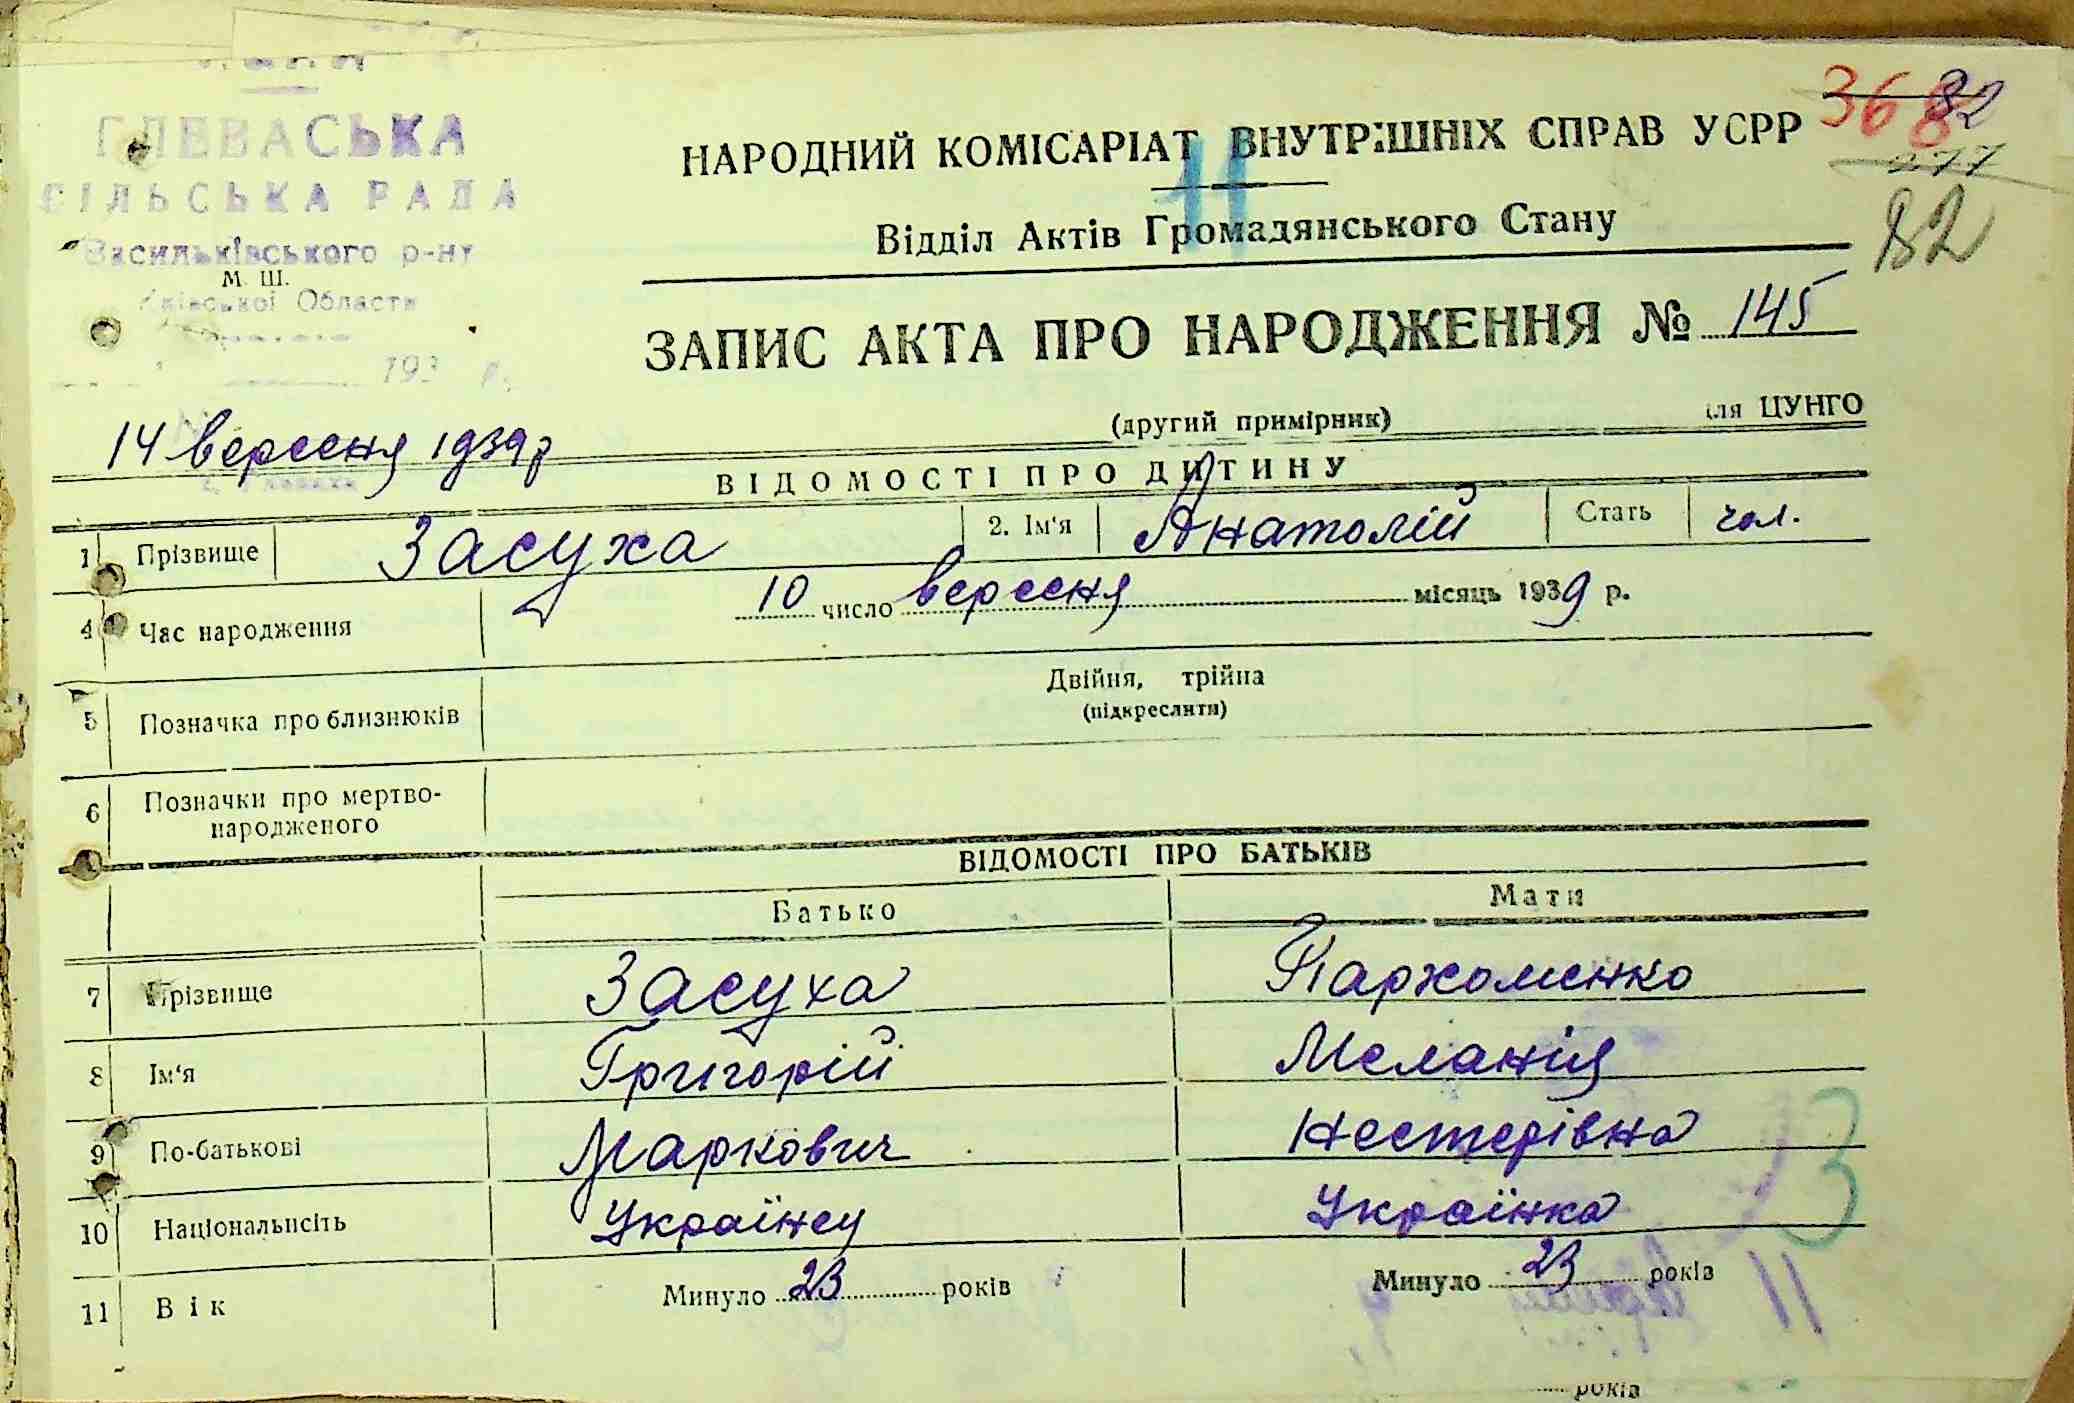 ГЛЕВАСЬКА
СІЛЬСЬКА РАДА
Васильківського р-ну
М. Ш.
Київської Области
193 р.
368
82
277
82
11
НАРОДНИЙ КОМІСАРІАТ ВНУТРІШНІХ СПРАВ УСРР
Відділ Актів Громадянського Стану
ЗАПИС АКТА ПРО НАРОДЖЕННЯ № 145
(другий примірник) для ЦУНГО
14 вересня 1939 р
ВІДОМОСТІ ПРО ДИТИНУ
1 Прізвище Засуха 2. Ім'я Анатолій Стать чол.
4 Час народження 10 число вересня місяць 1939 р.
5 Позначка про близнюків Двійня, трійна
(підкреслити)
6 Позначки про мертво-
народженого
ВІДОМОСТІ ПРО БАТЬКІВ
Батько Мати
7 Прізвище Засуха Пархоменко
8 Ім'я Григорій Меланія
9 По-батькові Маркович Нестерівна
10 Національність Українец Українка
11 Вік Минуло 23 років Минуло 23 років
3
років